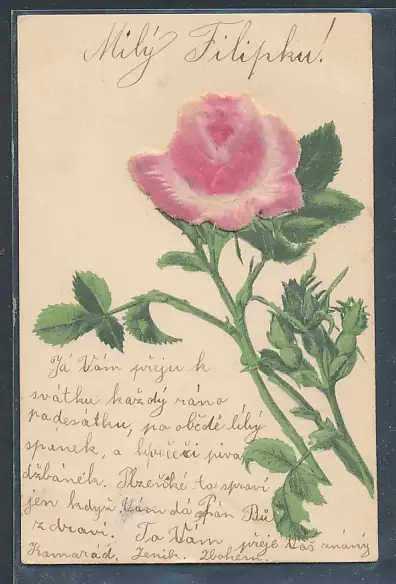 Milý Filipku!
Já Vám přeju k
svátku každý ráno
padesátku, po obědě lilý
spanek, a k večeři piva
džbánek. Plzeňské to spraví
jen když Vám dá Pán Bů
zdraví. To Vám přeje Váš známý
Kamarád. Jenik. Zbohem.